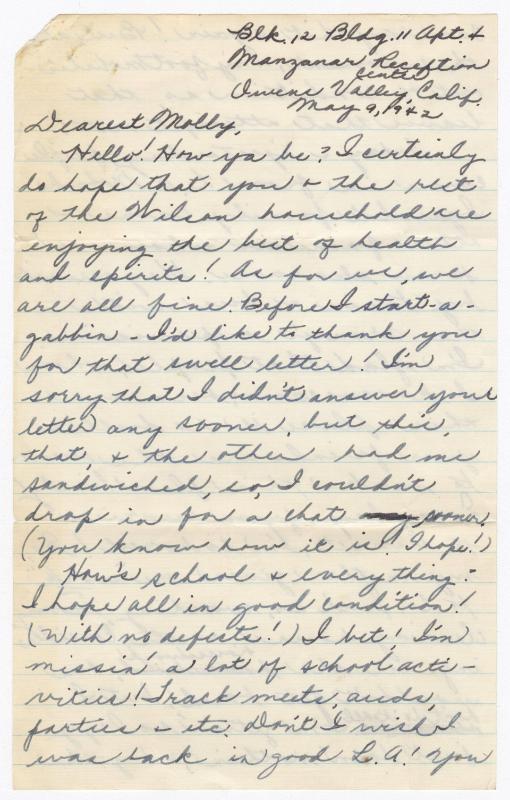 Blk. 12 Bldg. 11 Apt. 4
Manzanar Reception
Center
Owens Valley, Calif.
May 9, 1942
Dearest Molly,
Hello! How ya be? I certainly
do hope that you & the rest
of the Wilson household are
enjoying the best of health
and spirits! As for us, we
are all fine. Before I start-a-
gabbin - I'd like to thank you
for that swell letter! I'm
sorry that I didn't answer your
letter any sooner, but this,
that, & the other had me
sandwiched, so, I couldn't
drop in for a chat sooner.
(You know how it is, I hope!)
How's school & everything?
I hope all in good condition!
(With no defects!) I bet! I'm
missin' a lot of school acti-
vities! Track meets, auds,
parties - etc. Don't I wish I
was back in good L.A! You